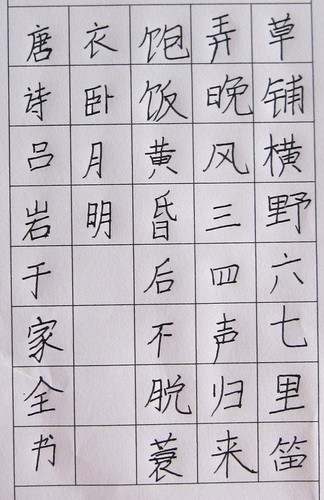 草铺横野六七里笛
弄晚风三四声归来
饱饭黄昏后不脱蓑
衣卧月明
唐诗吕岩于家全书